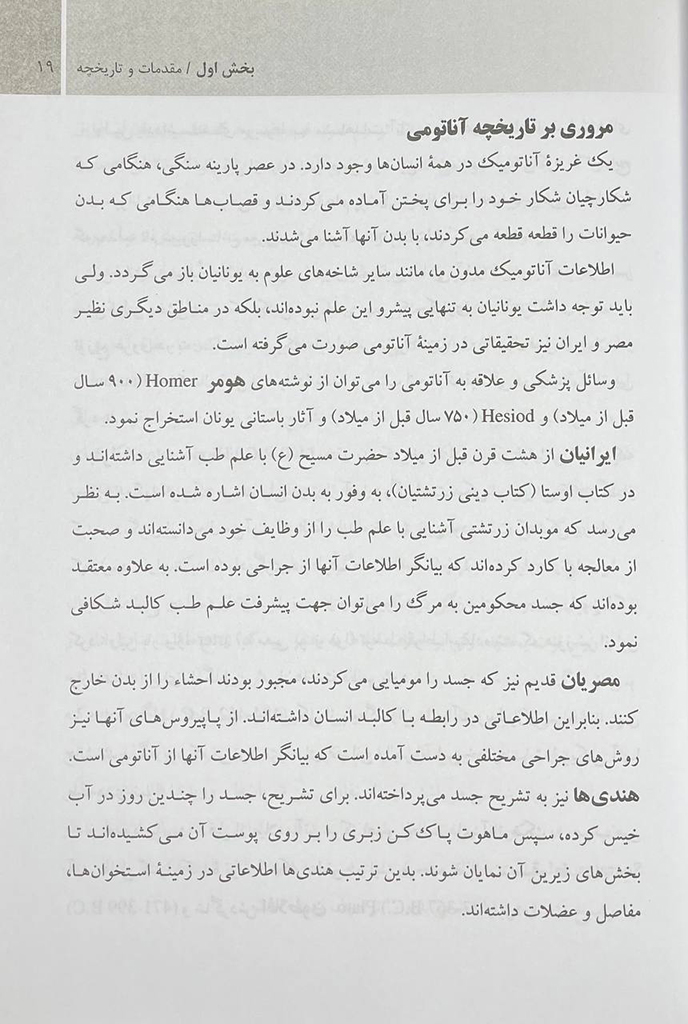 بخش اول / مقدمات و تاریخچه ۱۹
مروری بر تاریخچه آناتومی
یک غریزهٔ آناتومیک در همهٔ انسان‌ها وجود دارد. در عصر پارینه سنگی، هنگامی که
شکارچیان شکار خود را برای پختن آماده می‌کردند و قصاب‌ها هنگامی که بدن
حیوانات را قطعه قطعه می‌کردند، با بدن آنها آشنا می‌شدند.
اطلاعات آناتومیک مدون ما، مانند سایر شاخه‌های علوم به یونانیان باز می‌گردد. ولی
باید توجه داشت یونانیان به تنهایی پیشرو این علم نبوده‌اند، بلکه در مناطق دیگری نظیر
مصر و ایران نیز تحقیقاتی در زمینهٔ آناتومی صورت می‌گرفته است.
وسائل پزشکی و علاقه به آناتومی را می‌توان از نوشته‌های هومر Homer (۹۰۰ سال
قبل از میلاد) و Hesiod (۷۵۰ سال قبل از میلاد) و آثار باستانی یونان استخراج نمود.
ایرانیان از هشت قرن قبل از میلاد حضرت مسیح (ع) با علم طب آشنایی داشته‌اند و
در کتاب اوستا (کتاب دینی زرتشتیان)، به وفور به بدن انسان اشاره شده است. به نظر
می‌رسد که موبدان زرتشتی آشنایی با علم طب را از وظایف خود می‌دانسته‌اند و صحبت
از معالجه با کارد کرده‌اند که بیانگر اطلاعات آنها از جراحی بوده است. به علاوه معتقد
بوده‌اند که جسد محکومین به مرگ را می‌توان جهت پیشرفت علم طب کالبد شکافی
نمود.
مصریان قدیم نیز که جسد را مومیایی می‌کردند، مجبور بودند احشاء را از بدن خارج
کنند. بنابراین اطلاعاتی در رابطه با کالبد انسان داشته‌اند. از پاپیروس‌های آنها نیز
روش‌های جراحی مختلفی به دست آمده است که بیانگر اطلاعات آنها از آناتومی است.
هندی‌ها نیز به تشریح جسد می‌پرداخته‌اند. برای تشریح، جسد را چندین روز در آب
خیس کرده، سپس ماهوت پاک‌کن زبری را بر روی پوست آن می‌کشیده‌اند تا
بخش‌های زیرین آن نمایان شوند. بدین ترتیب هندی‌ها اطلاعاتی در زمینهٔ استخوان‌ها،
مفاصل و عضلات داشته‌اند.